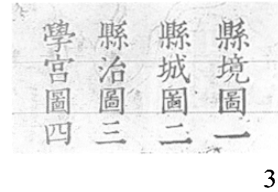 縣境圖一
縣城圖二
縣治圖三
學宮圖四
3